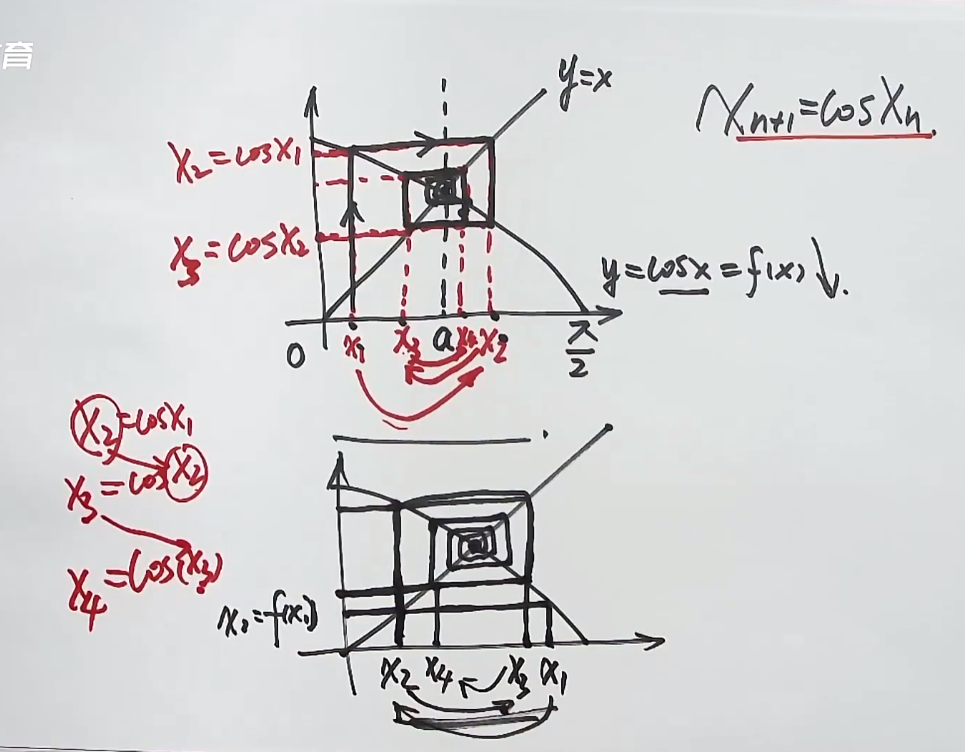 育
y=x
x_{n+1}=cosx_n.
x_2=cosx_1
x_3=cosx_2
y=cosx=f(x)↓.
0 x_1 x_3 a x_4 x_2 π/2
x_2=cosx_1
x_3=cosx_2
x_4=cos(x_3)
x_2=f(x_1)
x_2 x_4 x_3 x_1